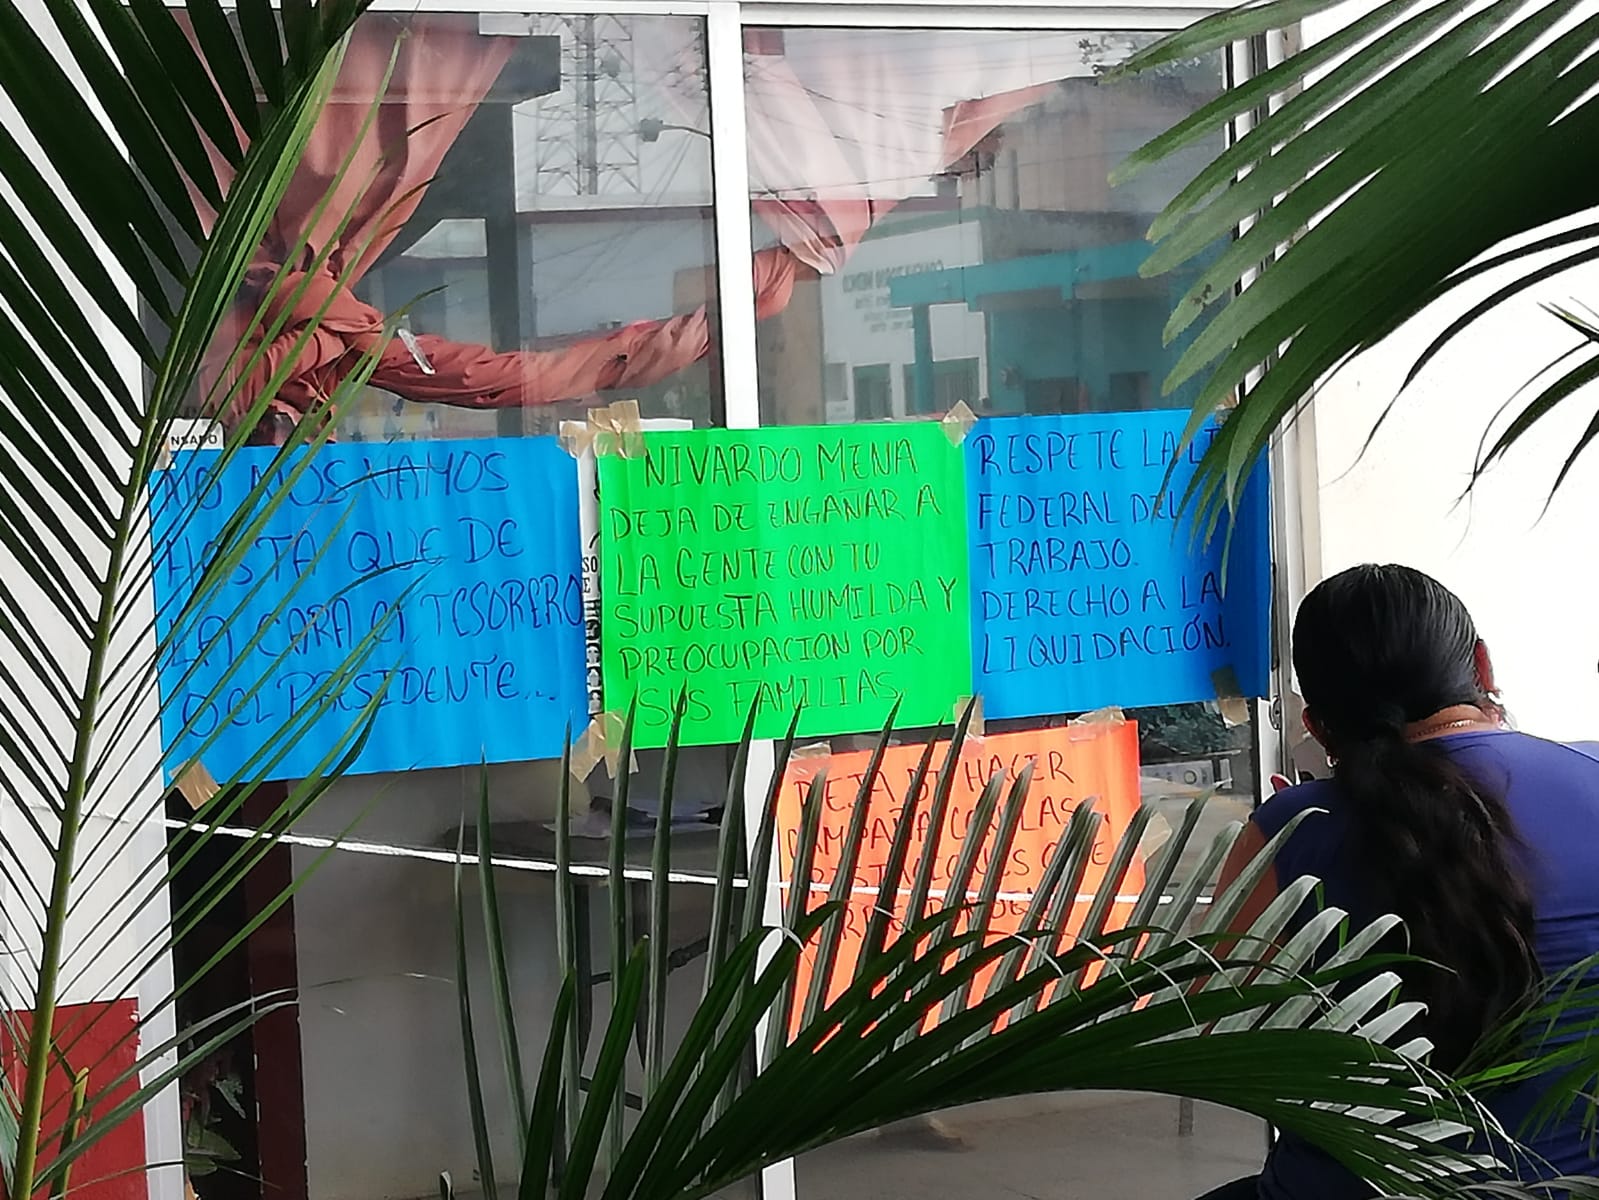 NO NOS VAMOS
HASTA QUE DE
LA CARA EL TESORERO
O EL PRESIDENTE...
NIVARDO MENA
DEJA DE ENGAÑAR A
LA GENTE CON TU
SUPUESTA HUMILDA Y
PREOCUPACION POR
SUS FAMILIAS
RESPETE LA
FEDERAL DEL
TRABAJO.
DERECHO A LA
LIQUIDACIÓN.
DEJA DE HACER
CAMPAÑA CON LAS